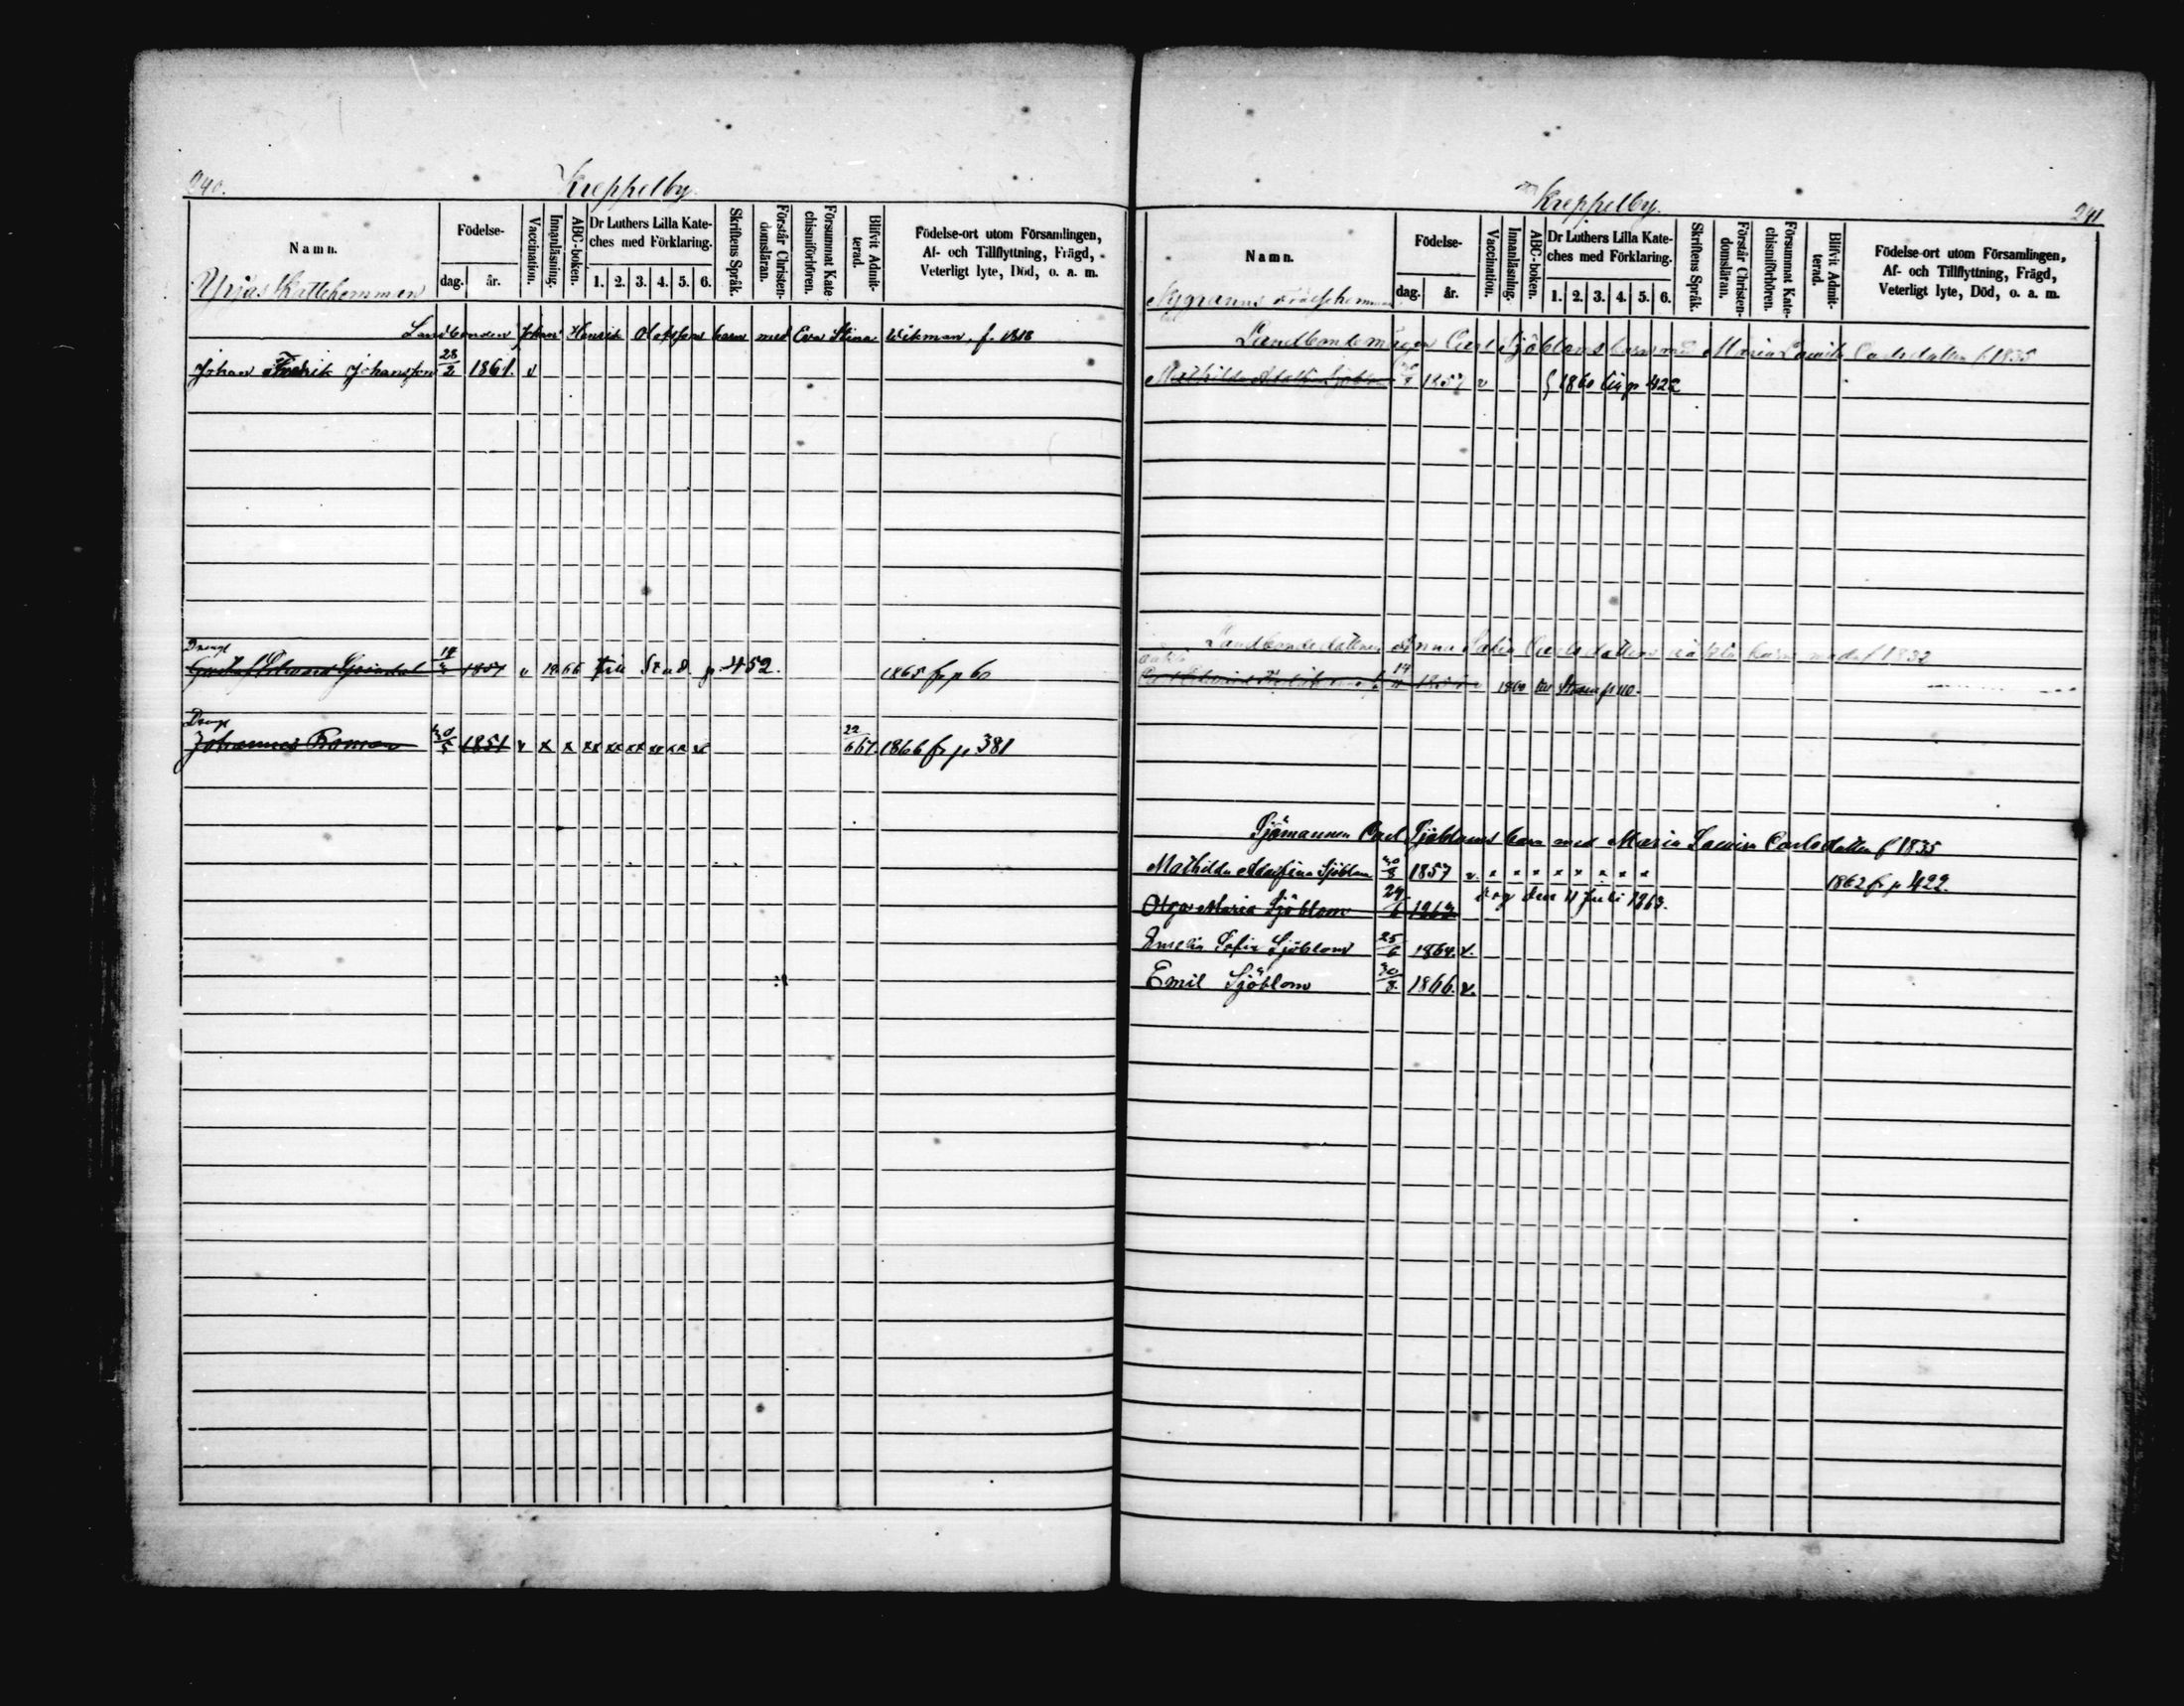 240.
Kreppelby.
Namn.
Födelse-
dag. år.
Vaccination.
Innanläsning.
ABC-boken.
Dr Luthers Lilla Kate-
ches med Förklaring.
1. 2. 3. 4. 5. 6.
Skriftens Språk.
Förstår Christen-
domsläran.
Försummat Kate-
chismiförhören.
Blifvit Admit-
terad.
Födelse-ort utom Församlingen,
Af- och Tillflyttning, Frägd,
Veterligt lyte, Död, o. a. m.
Skattehemman
Landbonden Johan Henrik Olofsson barn med Eva Stina Wikman. f. 1818
Johan Fredrik Johansson 28/2 1861. v
Drengl
Gustaf Edvard 1857 v 1866 till Strnd. p 452. 1865 fr p 60
Drengl
Johannes Roman 30/5 1851 v x x xx xx xx xx xx xx 22/6 67. 1866 fr p 381
Kreppelby.
241
Namn.
Födelse-
dag. år.
Vaccination.
Innanläsning.
ABC-boken.
Dr Luthers Lilla Kate-
ches med Förklaring.
1. 2. 3. 4. 5. 6.
Skriftens Språk.
Förstår Christen-
domsläran.
Försummat Kate-
chismiförhören.
Blifvit Admit-
terad.
Födelse-ort utom Församlingen,
Af- och Tillflyttning, Frägd,
Veterligt lyte, Död, o. a. m.
Nygranns Frälsehemman
Carl Sjöbloms barn med Maria Lovisa Carlsdotter f 1835
Mathilda Sjöblom 1857 v 1860 till p 422
Landbondedottren Anna Sofia Carlsdotters oäkta barn f 1832
oäkta
Carl 14 v 1860 till p 110.
Sjömannen Carl Sjöbloms barn med Maria Lovisa Carlsdotter f 1835
Mathilda Adolfina Sjöblom 30/8 1857 v. x x x x x x x x 1862 fr p 422.
Olga Maria Sjöblom 29/6 1863 dog den 11 Juli 1863.
Amelia Sofia Sjöblom 25/6 1864. v.
Emil Sjöblom 30/8. 1866. v.